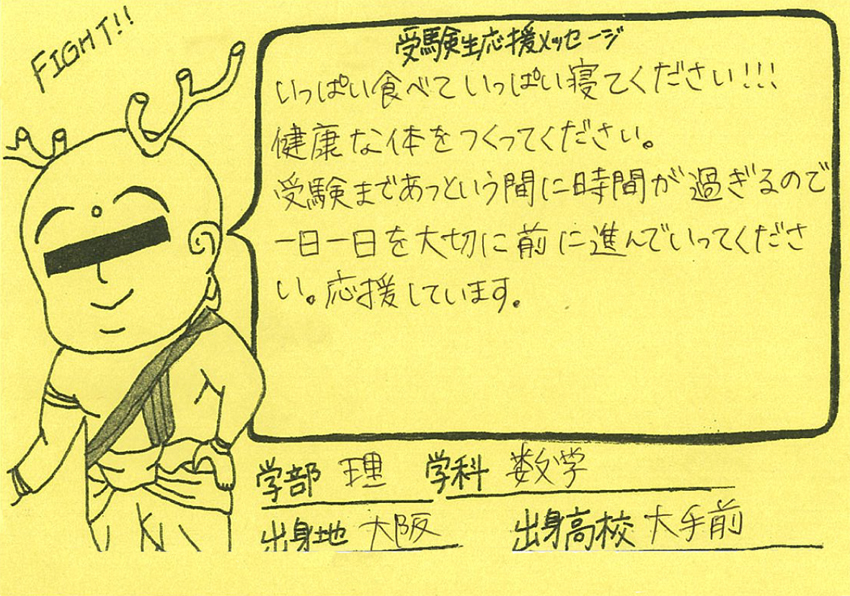 FIGHT!!
受験生応援メッセージ
いっぱい食べていっぱい寝てください!!!
健康な体をつくってください。
受験まであっという間に時間が過ぎるので
一日一日を大切に前に進んでいってくださ
い。応援しています。
学部 理 学科 数学
出身地 大阪 出身高校 大手前